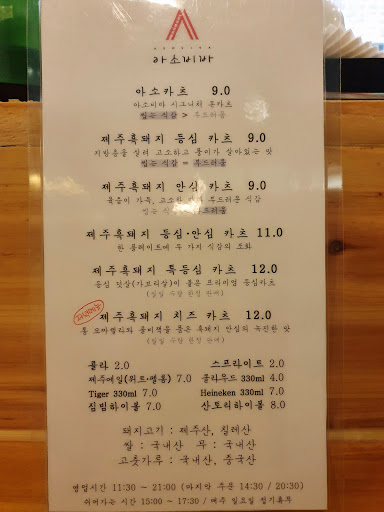 아소비바
아소카츠 9.0
아소비바 시그니처 돈카츠
씹는 식감 > 부드러움
제주흑돼지 등심 카츠 9.0
지방층을 살려 고소하고 풍미가 살아있는 맛
씹는 식감 = 부드러움
제주흑돼지 안심 카츠 9.0
육즙이 가득, 고소한 맛과 부드러운 식감
씹는 식감 < 부드러움
제주흑돼지 등심·안심 카츠 11.0
한 플레이트에 두 가지 식감의 조화
제주흑돼지 특등심 카츠 12.0
등심 덧살(가브리살)이 붙은 프리미엄 등심카츠
(일일 수량 한정 판매)
제주흑돼지 치즈 카츠 12.0
통 모짜렐라와 풍미짙은 흑돼지 안심의 녹진한 맛
(일일 수량 한정 판매)
콜라 2.0 스프라이트 2.0
제주에일(위트·펠롱) 7.0 클라우드 330ml 4.0
Tiger 330ml 7.0 Heineken 330ml 7.0
짐빔하이볼 7.0 산토리하이볼 8.0
돼지고기 : 제주산, 칠레산
쌀 : 국내산 무 : 국내산
고춧가루 : 국내산, 중국산
영업시간 11:30 ~ 21:00 (마지막 주문 14:30 / 20:30)
쉬어가는 시간 15:00 ~ 17:30 / 매주 일요일 정기휴무